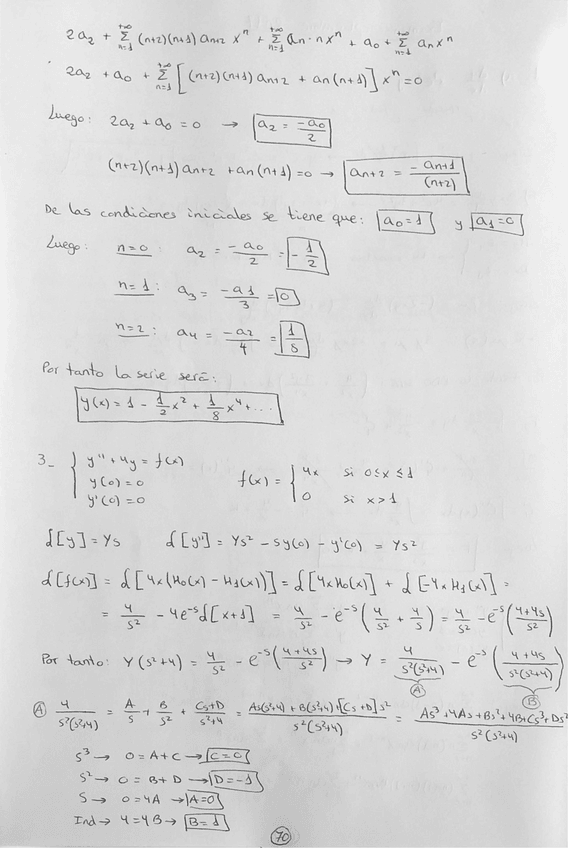 2a₂ + Σ_{n=1}^{+∞} (n+2)(n+1) aₙ₊₂ xⁿ + Σ_{n=1}^{+∞} aₙ · n xⁿ + a₀ + Σ_{n=1}^{+∞} aₙ xⁿ
2a₂ + a₀ + Σ_{n=1}^{+∞} [(n+2)(n+1) aₙ₊₂ + aₙ(n+1)] xⁿ = 0
Luego: 2a₂ + a₀ = 0 → a₂ = -a₀/2
(n+2)(n+1) aₙ₊₂ + aₙ(n+1) = 0 → aₙ₊₂ = -aₙ₊₁/(n+2)
De las condiciones iniciales se tiene que: a₀ = 1 y a₁ = 0
Luego: n=0: a₂ = -a₀/2 = -1/2
n=1: a₃ = -a₁/3 = 0
n=2: a₄ = -a₂/4 = 1/8
Por tanto la serie será:
y(x) = 1 - 1/2 x² + 1/8 x⁴ + ...
3_ { y'' + 4y = f(x)
y(0) = 0
y'(0) = 0
f(x) = { 4x si 0≤x≤1
0 si x>1
ℒ[y] = Ys ℒ[y''] = Ys² - sy(0) - y'(0) = Ys²
ℒ[f(x)] = ℒ[4x(H₀(x) - H₁(x))] = ℒ[4xH₀(x)] + ℒ[-4xH₁(x)] =
= 4/s² - 4e⁻ˢℒ[x+1] = 4/s² - e⁻ˢ(4/s² + 4/s) = 4/s² - e⁻ˢ((4+4s)/s²)
Por tanto: Y(s²+4) = 4/s² - e⁻ˢ((4+4s)/s²) → Y = 4/(s²(s²+4)) - e⁻ˢ((4+4s)/(s²(s²+4)))
A B
A 4/(s²(s²+4)) = A/s + B/s² + (Cs+D)/(s²+4) = (As(s²+4) + B(s²+4) + [Cs+D]s²)/(s²(s²+4)) = (As³ + 4As + Bs² + 4B + Cs³ + Ds²)/(s²(s²+4))
s³ → 0 = A + C → C = 0
s² → 0 = B + D → D = -1
s → 0 = 4A → A = 0
Ind → 4 = 4B → B = 1
70